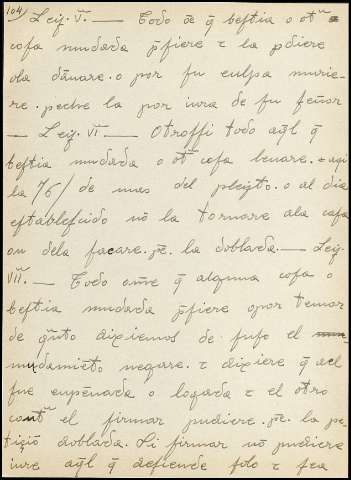 104) Leig. V. — Todo õe q̃ beſtia o otª
coſa mudada p̃ſiere τ la p̃diere
o la dãnare. o por ſu culpa murie-
re. peche la por iura de ſu ſeñor
— Leig. VI — Otroſſi todo aq̃l q̃
beſtia mudada o otª coſa leuare. τ aqi
la /6/ de mas del pleyto. o al dia
eſtableſcido nõ la tornare ala caſa
on dela ſacare. pe. la doblada. — Leig.
VII. — Todo ome q̃ alguna coſa o
beſtia mudada p̃ſiere o por temor
de q̃nto dixiemos de ſuſo el
mudamiẽto negare. τ dixiere q̃ ael
fue enpẽnada o logada τ el otro
contª el firmar pudiere. pe. la pe-
tiçiõ doblada. Si firmar nõ pudiere
iure aq̃l q̃ defiende ſolo τ ſea